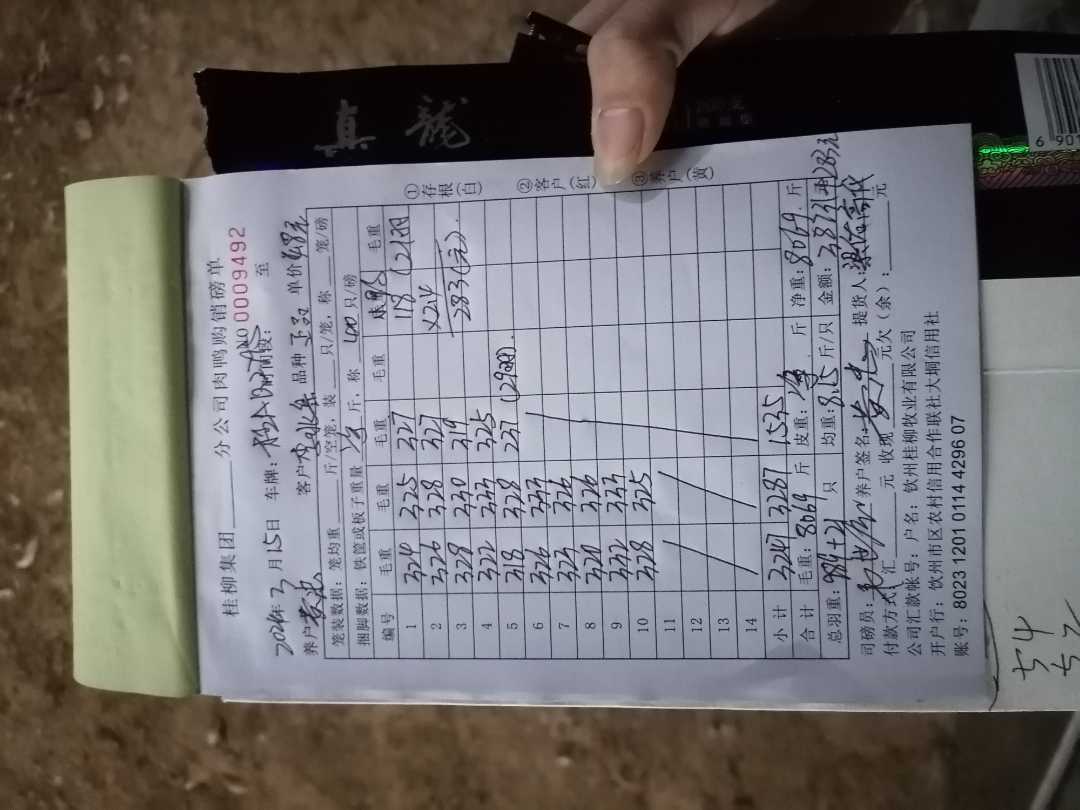 真龍
桂柳集团____分公司肉鸭购销磅单
2024年3月15日 车牌: 时间段: 至
NO 0009492
养户 黄 客户 品种 单价4.8元
笼装数据: 笼均重____斤/空笼, 装____只/笼, 称____笼/磅
捆脚数据: 铁筐或板子重量 净 斤, 称 40 只/磅
编号 毛重 毛重 毛重 毛重 毛重
1 324 325 327 118 (21羽)
2 326 328 327 ×2.4
3 328 330 319 283(元)
4 322 333 325
5 318 328 237 (29羽)
6 326 333
7 323 326
8 320 326
9 332 333
10 328 325
11
12
13
14
小计 3247 3287 1535
合计 毛重: 8069 斤 皮重: 净 斤 净重: 8069 斤
总羽重: 984+21 只 均重: 8.15 斤/只 金额: 38731+283元
司磅员: 养户签名: 黄 提货人:
付款方式: 汇____元 收现____元欠(余):____元
公司汇款帐号: 户名: 钦州桂柳牧业有限公司
开户行: 钦州市区农村信用合作联社大垌信用社
账号: 8023 1201 0114 4296 07
①存根(白)
②客户(红)
③养户(黄)
54